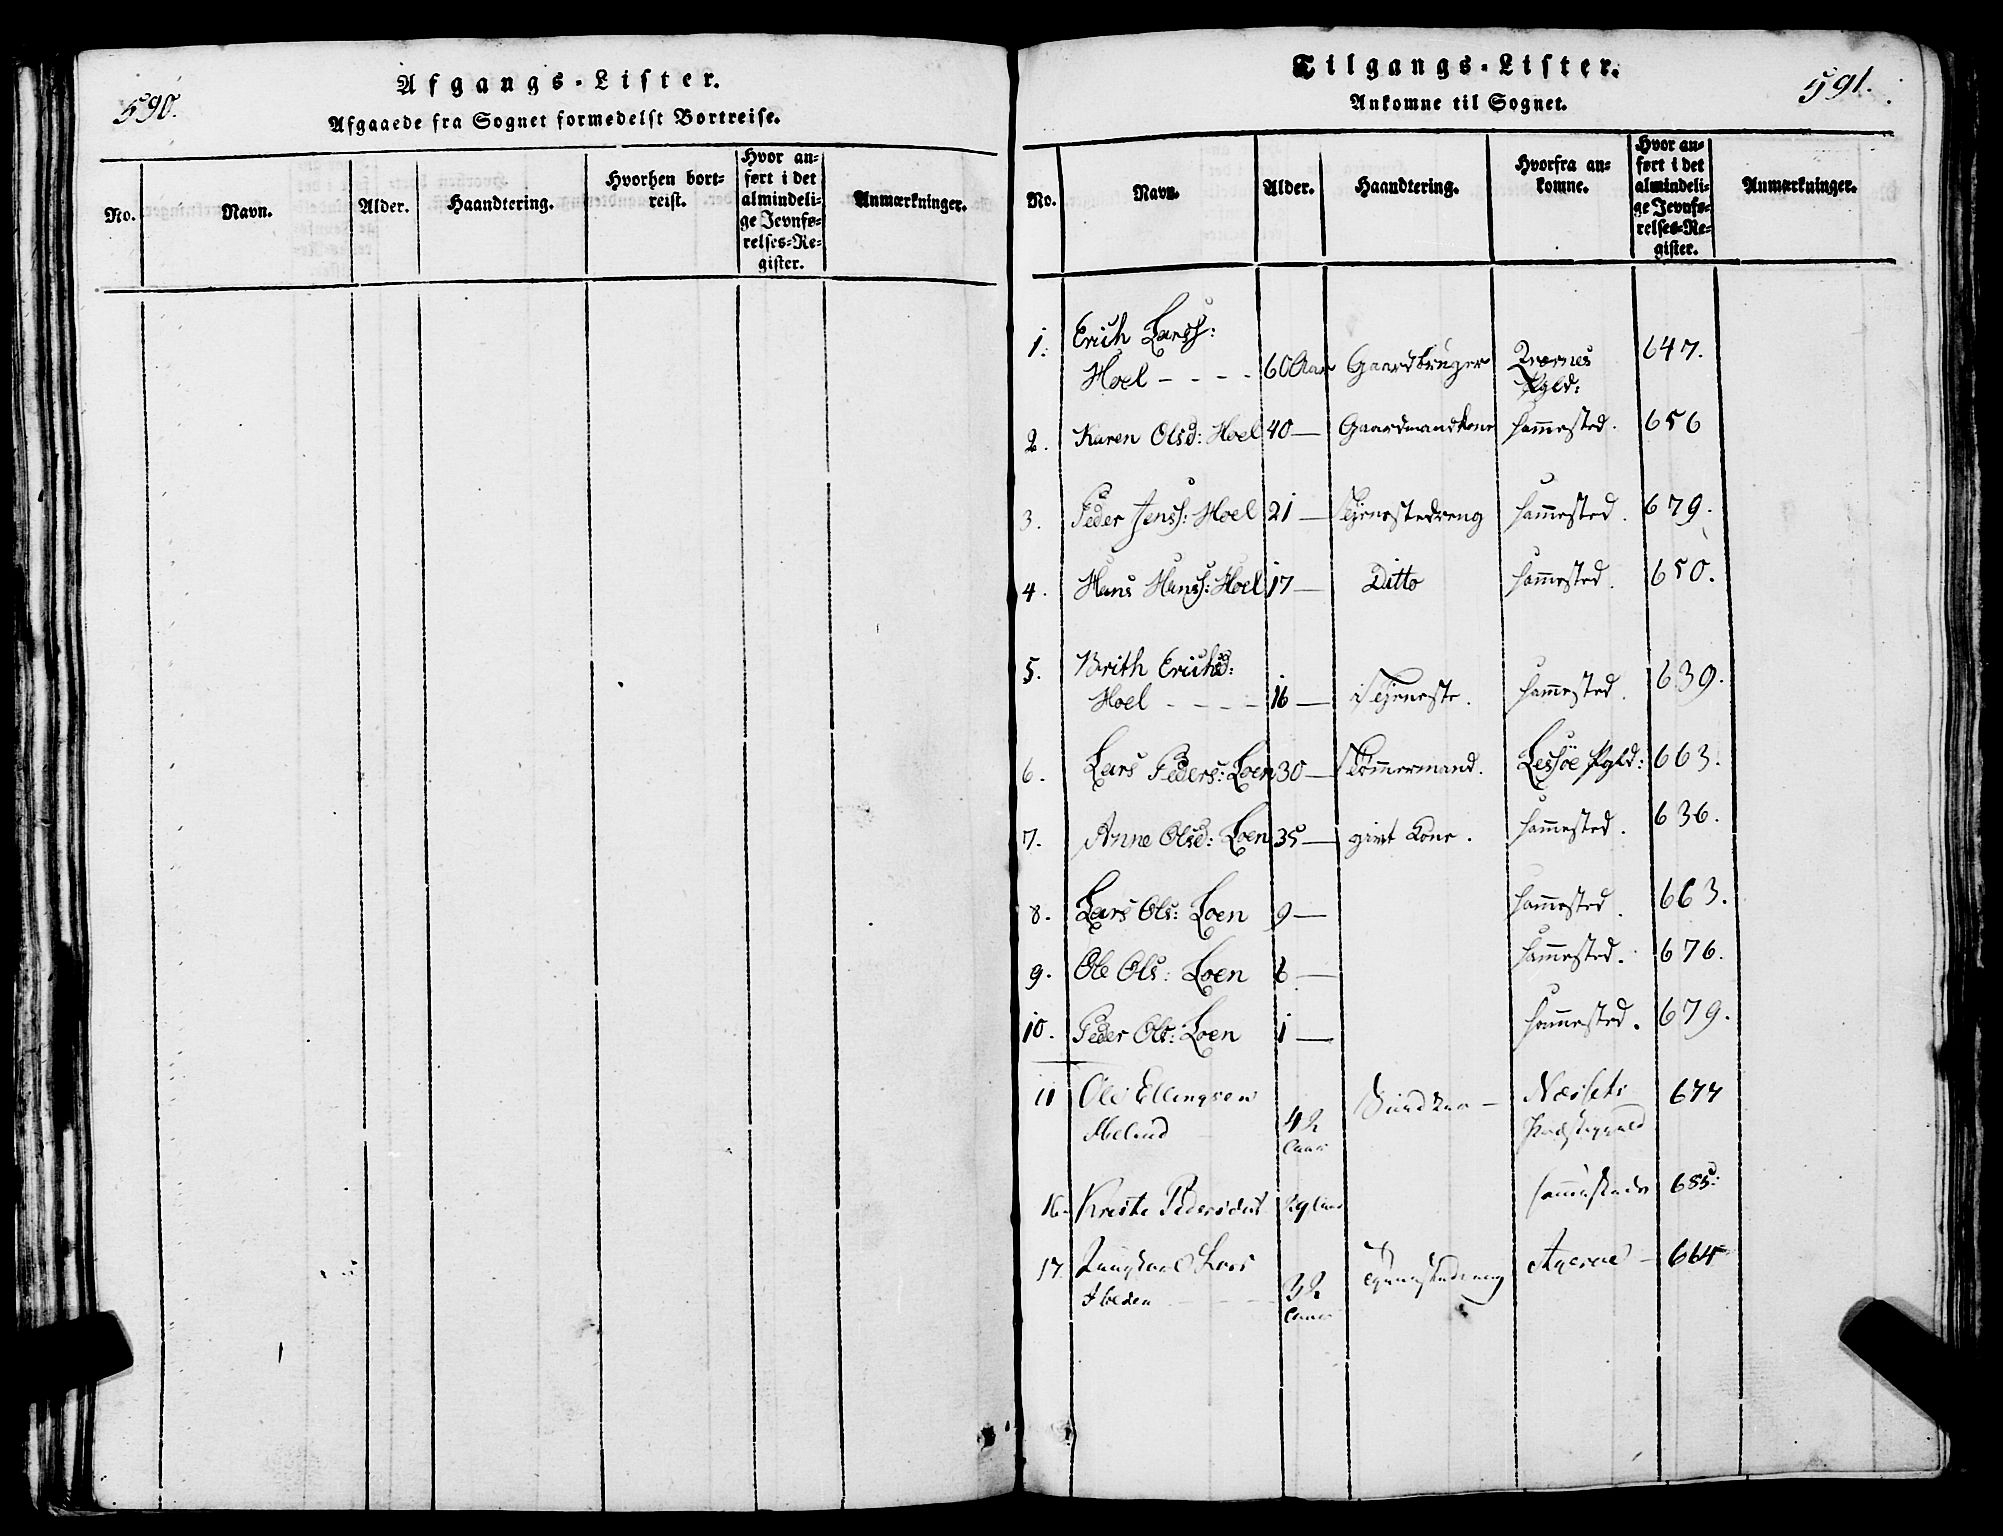 590.
Afgangs-Lister.
Afgaaede fra Sognet formedelst Bortreise.
No.
Navn.
Alder.
Haandtering.
Hvorhen bort-
reist.
Hvor an-
ført i det
almindeli-
ge Jevnfø-
relses-Re-
gister.
Anmærkninger.
Tilgangs-Lister.
591.
Ankomne til Sognet.
No.
Navn.
Alder.
Haandtering.
Hvorfra an-
komne.
Hvor an-
ført i det
almindeli-
ge Jevnfø-
relses-Re-
gister.
Anmærkninger.
1. Erich Larss:
Hoel - - - - 60 Aar Gaardbruger Qvernes 647.
Pgld:
2. Karen Olsd: Hoel 40 — Gaardmandkone sammested. 656
3. Peder Jenss: Hoel 21 — Tjenestedreng sammested. 679.
4. Hans Hanss: Hoel 17 — Ditto sammested. 650.
5. Brith Erichsd:
Hoel - - - - 16 — i Tjeneste. sammested. 639.
6. Lars Peders: Loen 30 — Tømmermand. Lessøe Pgld: 663.
7. Anne Olsd: Loen 35 — givt Kone. sammested. 636.
8. Lars Ols: Loen 9 — sammested. 663.
9. Ole Ols: Loen 6 — sammested. 676.
10. Peder Ols: Loen 1 — sammested. 679.
11 Ole Ellingsen Næssets 677
42
Aar
16 Kreste Pedersdat 29 Aar sammesteds 685:
17. Lars 664
32 Tjenestedreng
Aar